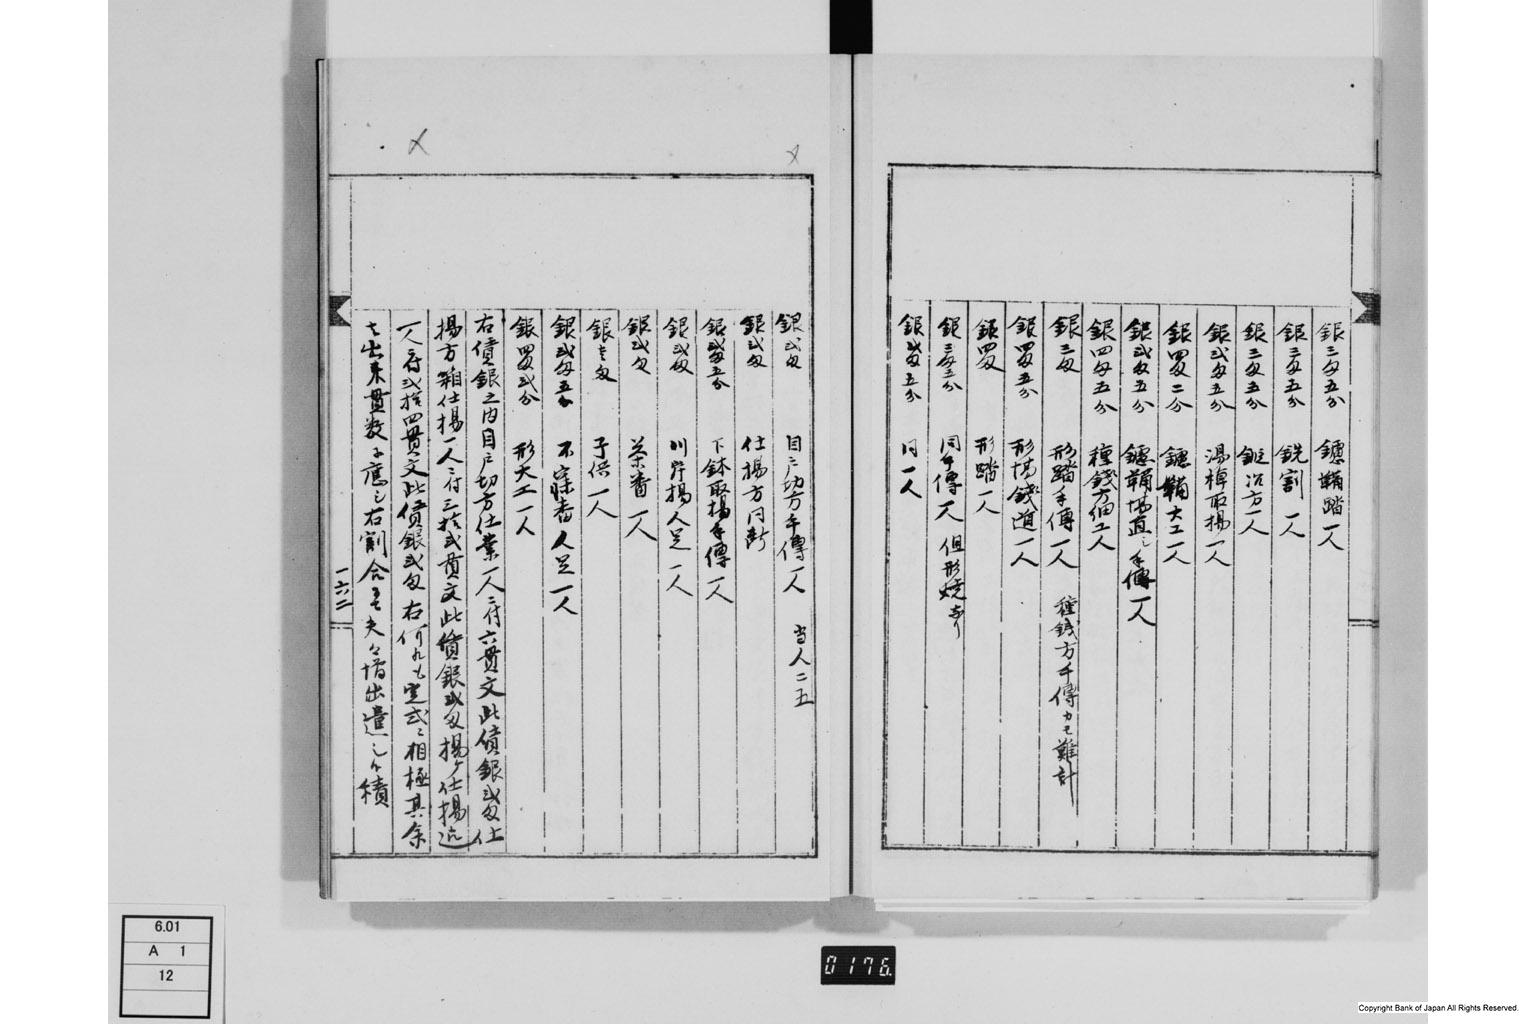 銀三匁五分 鑪鞴踏一人
銀三匁五分 銑割一人
銀三匁五分 鍛冶方一人
銀弐匁五分 湯棹取揚一人
銀四匁二分 鑪鞴大工一人
銀弐匁五分 鑪鞴場直シ手傳一人
銀四匁五分 種銭方細工人
銀三匁 形踏手傳一人 種銭方手傳カモ難計
銀四匁五分 形場銭道一人
銀四匁 形踏一人
銀三匁三分 同手傳一人 但形焼あり
銀弐匁五分 同一人
銀弐匁 目戸切方手傳一人 当人二五
銀弐匁 仕揚方同断
銀弐匁五分 下鉢取揚手傳一人
銀弐匁 川岸揚人足一人
銀弐匁 茶番一人
銀壱匁 子供一人
銀弐匁五分 不寐番人足一人
銀四匁弐分 形大工一人
右債銀之内目戸切方仕業一人ニ付六貫文此債銀弐匁仕
揚方箱仕揚一人ニ付三拾弐貫文此債銀弐匁揚ケ仕揚迄
一人ニ付弐拾四貫文此債銀弐匁右何れも定式ニ相極其余
は出来貫数ニ應し右割合を以夫々増出遣し候積
一六二
6.01
A 1
12
0176
Copyright Bank of Japan All Rights Reserved.